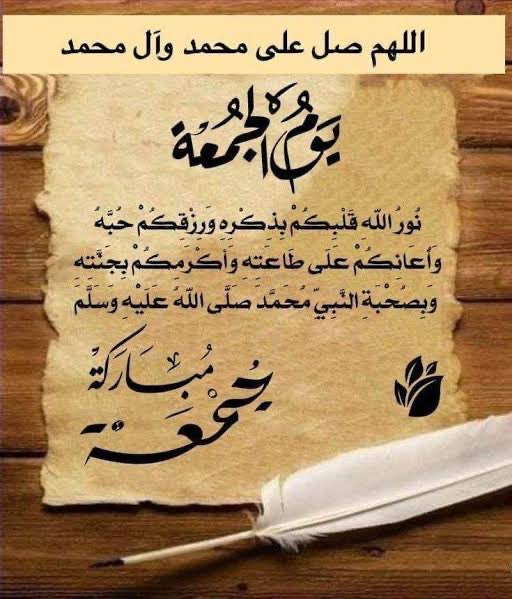 اللهم صل على محمد وآل محمد
يَومُ الجُمُعة
نُورُ اللّه قَلْبِكُمْ بِذِكْرِهِ وَرِزْقِكُمْ حُبَّهُ
وَأَعَانِكُمْ عَلَى طَاعَتِهِ وَأَكْرَمِكُمْ بِجَنَّتِهِ
وَبِصُحْبَةِ النَّبِيِّ مُحَمَّد صَلَّى اللّهُ عَلَيْهِ وَسَلَّمْ
جُمْعَة
مُبَارَكَةٌ